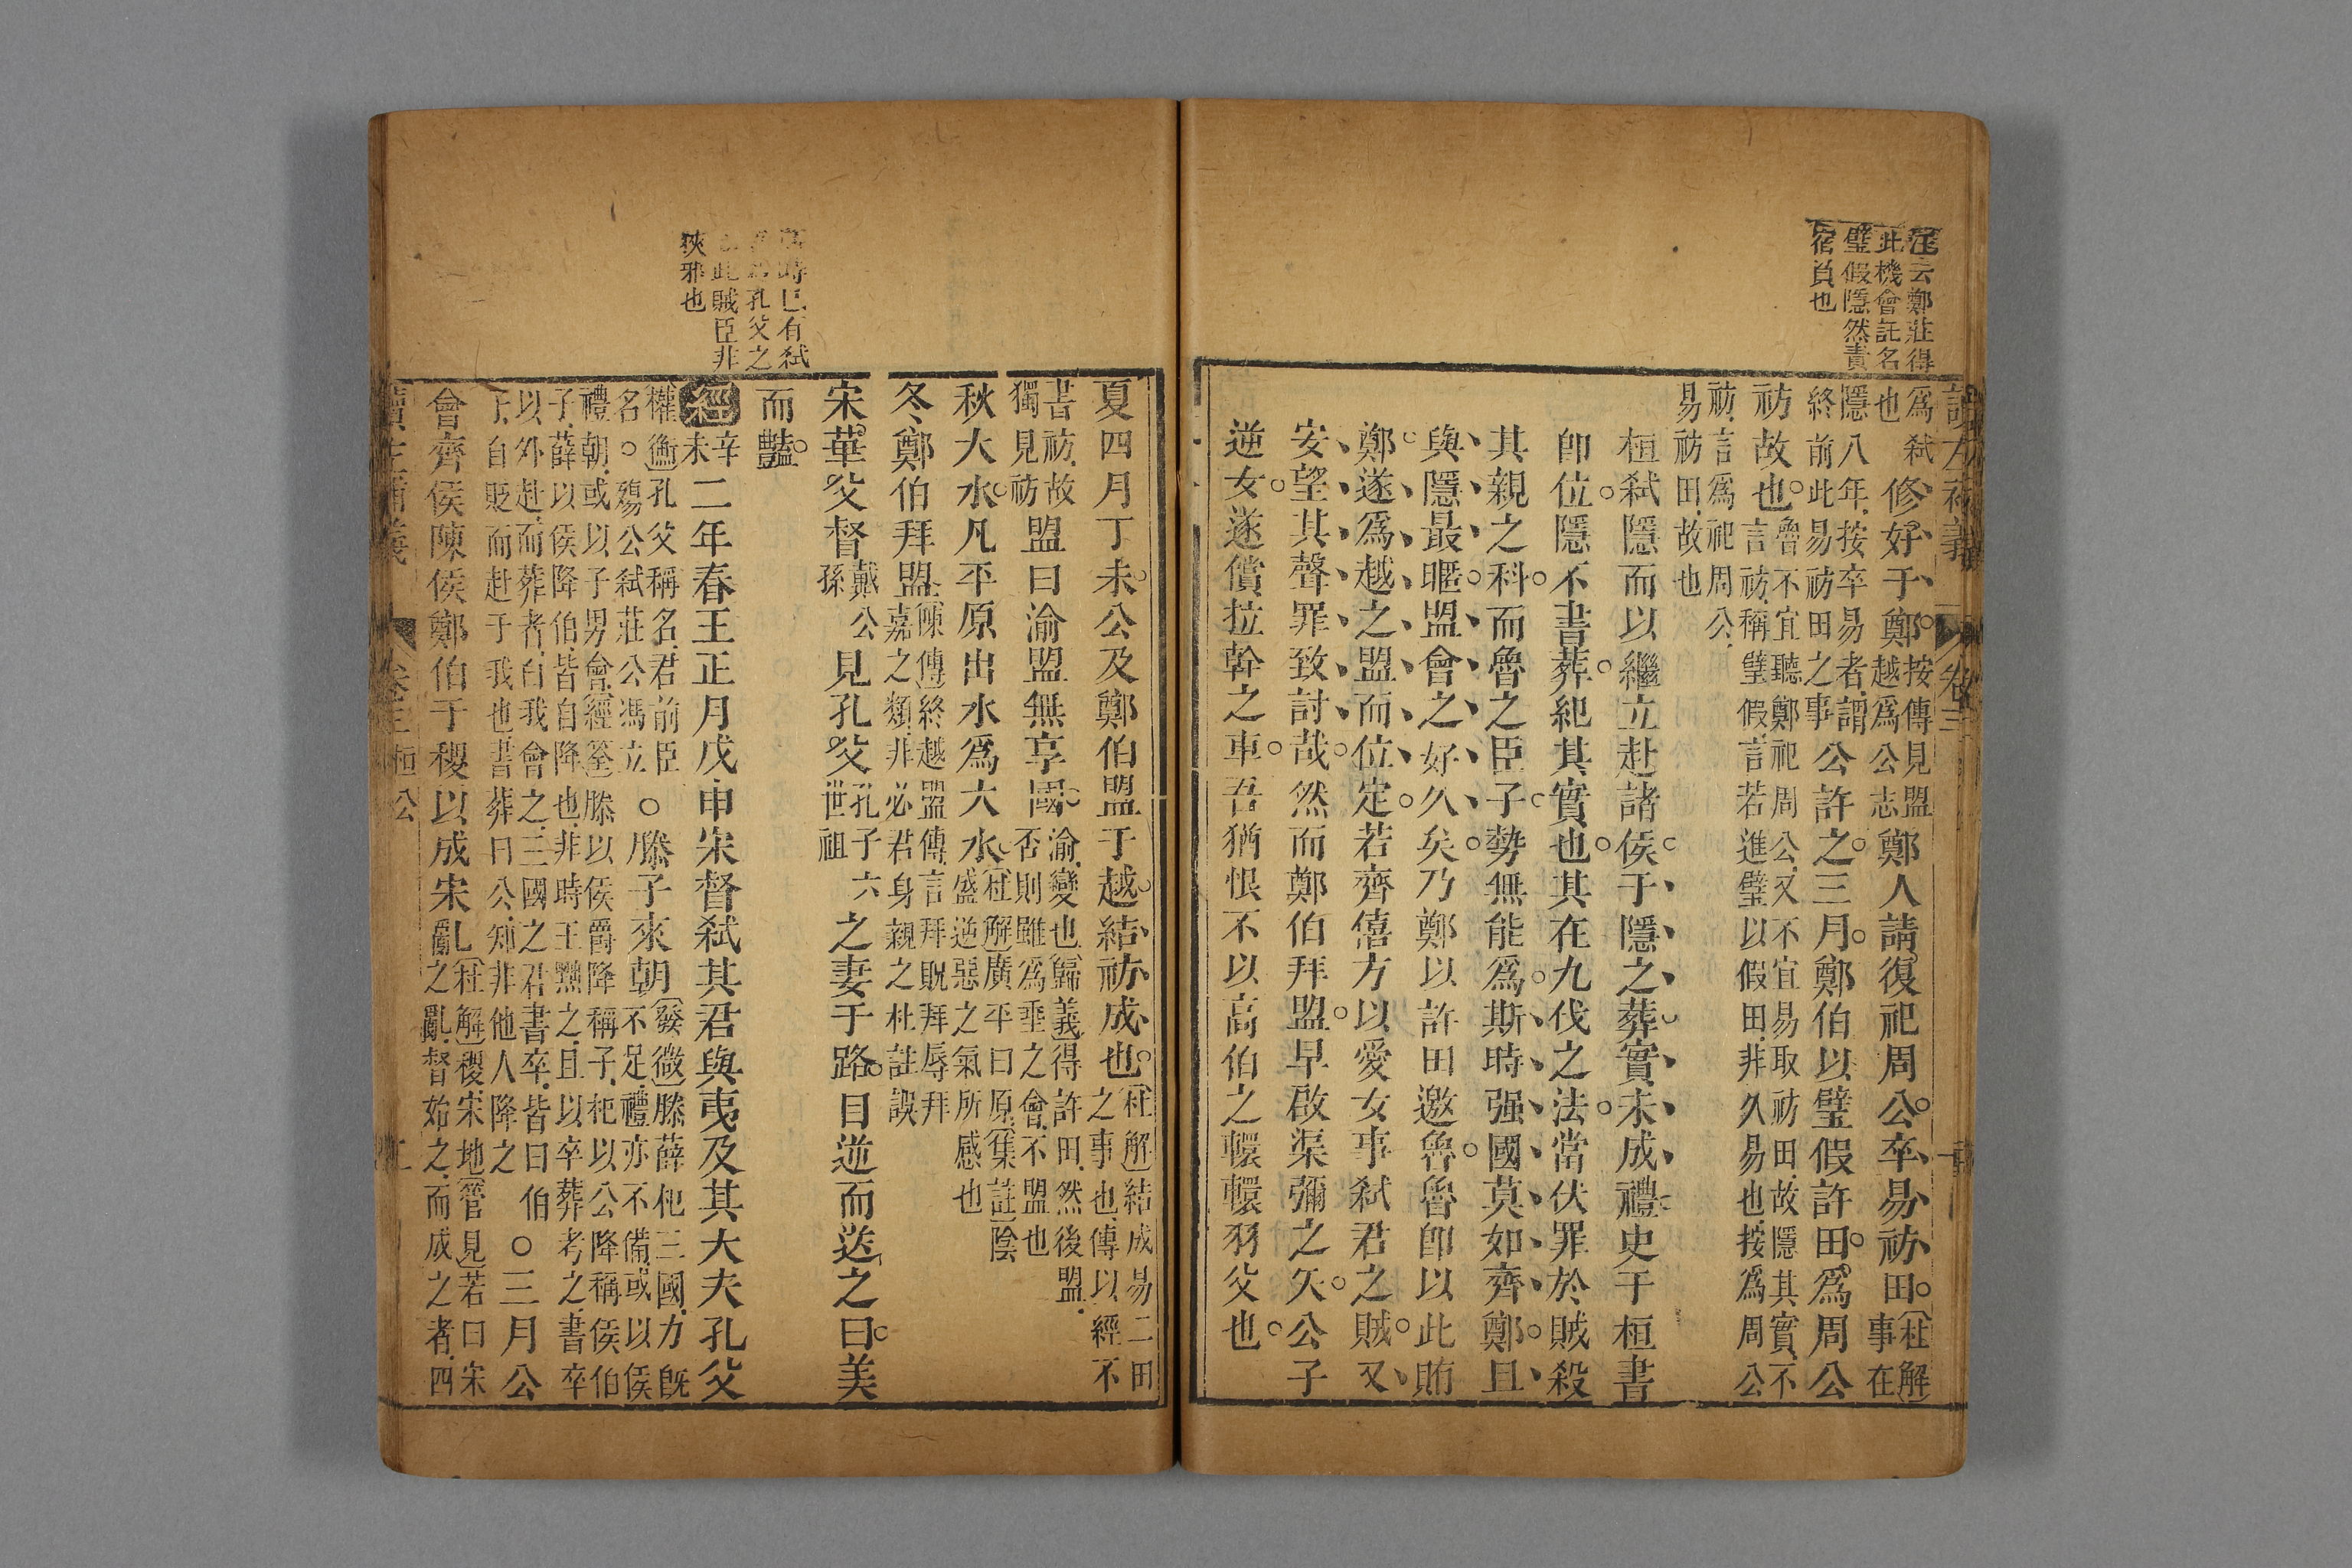 讀左補義
卷三
汪云鄭莊得
此機會託名
璧假隱然責
宿負也
爲弒
也
修好于鄭
按傳見盟
越爲公志
鄭人請復祀周公卒易祊田
杜解
事在
隱八年按卒易者謂
終前此易祊田之事
公許之三月鄭伯以璧假許田爲周公
祊故也
魯不宜聽鄭祀周公又不宜易取祊田故隱其實不
言祊稱璧假言若進璧以假田非久易也按爲周公
祊言爲祀周公
易祊田故也
桓弒隱而以繼立赴諸侯于隱之葬實未成禮史于桓書
卽位隱不書葬紀其實也其在九伐之法當伏罪於賊殺
其親之科而魯之臣子勢無能爲斯時强國莫如齊鄭且
與隱最暱盟會之好久矣乃鄭以許田邀魯魯卽以此賄
鄭遂爲越之盟而位定若齊僖方以愛女事弒君之賊又
安望其聲罪致討哉然而鄭伯拜盟早啟渠彌之矢公子
逆女遂償拉幹之車吾猶恨不以高伯之轘轘羽父也
夏四月丁未公及鄭伯盟于越結祊成也
杜解結成易二田
之事也傳以經不
書祊故
獨見祊
盟曰渝盟無享國
渝變也歸義得許田然後盟
否則雖爲垂之會不盟也
秋大水凡平原出水爲大水
杜解廣平曰原集註陰
盛逆惡之氣所感也
冬鄭伯拜盟
陳傳終越盟傳言拜貺拜辱拜
嘉之類非必君身親之杜註誤
宋華父督
戴公
孫
見孔父
孔子六
世祖
之妻于路目逆而送之曰美
而豔
時已有弒
孔父之
此賊臣非
狹邪也
經
辛
未
二年春王正月戊申宋督弒其君與夷及其大夫孔父
權衡孔父稱名君前臣
名○殤公弒莊公馮立
○滕子來朝
發微滕薛杞三國力旣
不足禮亦不備或以侯
禮朝或以子男會經筌滕以侯爵降稱子杞以公降稱侯伯
子薛以侯降伯皆自降也非時王黜之且以卒葬考之書卒
以外赴而葬者自我會之三國之君書卒皆曰伯
子自貶而赴于我也書葬曰公知非他人降之
○三月公
會齊侯陳侯鄭伯于稷以成宋亂
杜解稷宋地管見若曰宋
亂之亂督始之而成之者四
讀左補義
卷三 桓公